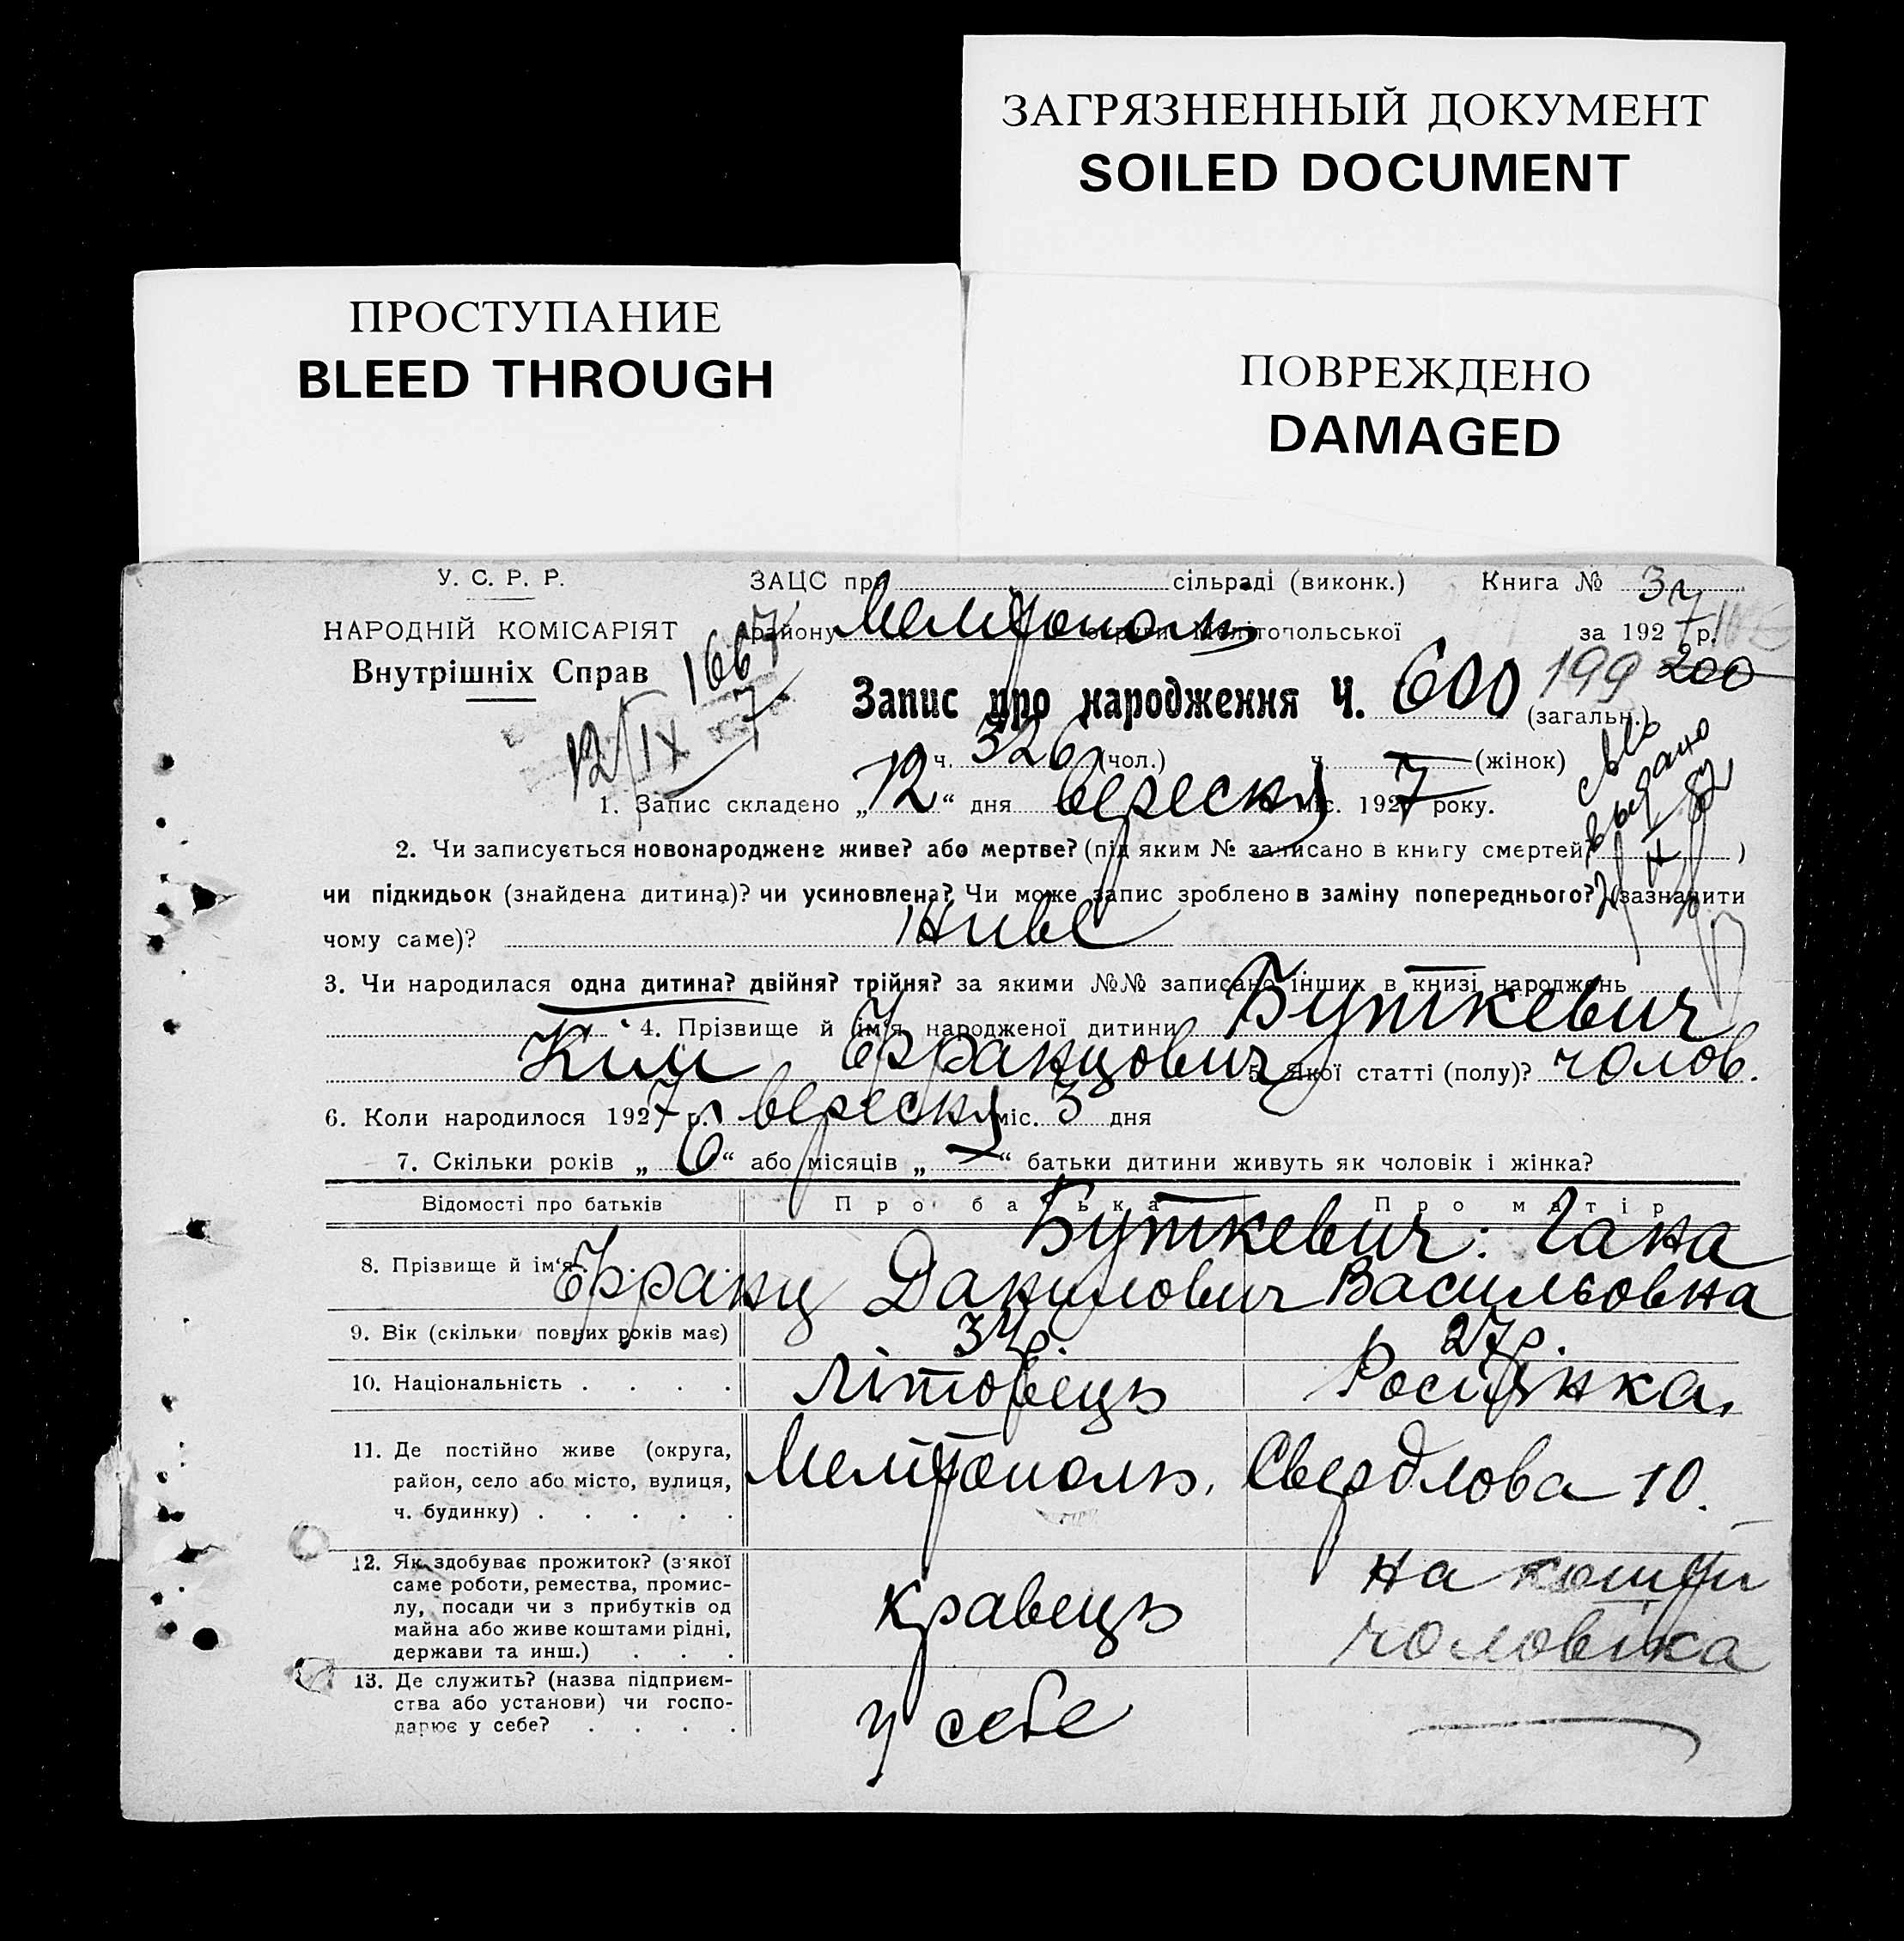 ЗАГРЯЗНЕННЫЙ ДОКУМЕНТ
SOILED DOCUMENT
ПРОСТУПАНИЕ
BLEED THROUGH
ПОВРЕЖДЕНО
DAMAGED
У. С. Р. Р.
НАРОДНІЙ КОМІСАРІЯТ
Внутрішніх Справ
ЗАЦС при сільраді (виконк.) Книга №
району Мелітополь округи Мелітопольської за 1927 р.
1667
12/IX 7
Запис про народження Ч. 600 199 200
(загальн.)
ч. 326 (чол.) ч. — (жінок)
1. Запис складено „12“ дня вересня міс. 1927 року.
2. Чи записується новонароджене живе? або мертве? (під яким № записано в книгу смертей )
чи підкидьок (знайдена дитина)? чи усиновлена? Чи може запис зроблено в заміну попереднього? (зазначити
чому саме)? живе
3. Чи народилася одна дитина? двійня? трійня? за якими №№ записано інших в книзі народжень
4. Прізвище й ім'я народженої дитини Буткевич
Кім Францович 5. Якої статті (полу)? чолов.
6. Коли народилося 1927 р. вересня міс. 3 дня
7. Скільки років „6“ або місяців „—“ батьки дитини живуть як чоловік і жінка?
Відомості про батьків Про батька Про матір
8. Прізвище й ім'я Буткевич: Гана
Франц Данилович Васильовна
9. Вік (скільки повних років має) 34р. 27р.
10. Національність . . . . Літовець Росіянка
11. Де постійно живе (округа,
район, село або місто, вулиця,
ч. будинку) . . . . . Мелітополь, Свердлова 10.
12. Як здобуває прожиток? (з'якої
саме роботи, ремества, промис-
лу, посади чи з прибутків од
майна або живе коштами рідні,
держави та инш.) . . . кравець на кошти
чоловіка
13. Де служить? (назва підприєм-
ства або установи) чи госпо-
дарює у себе? . . . . у себе —